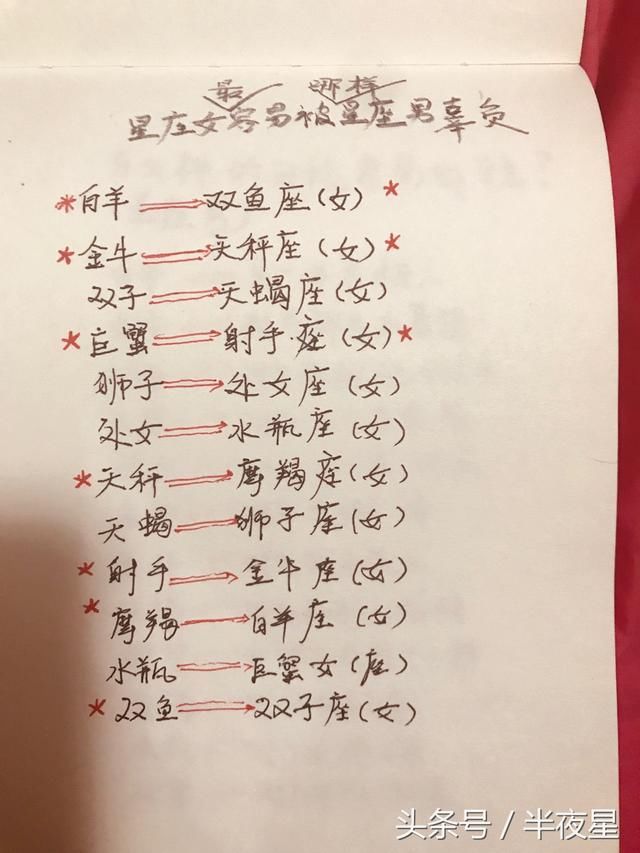 最 哪样
星座女容易被星座男辜负
*白羊→双鱼座(女)*
*金牛→天秤座(女)*
双子→天蝎座(女)
*巨蟹→射手座(女)*
狮子→处女座(女)
处女→水瓶座(女)
*天秤→摩羯座(女)
天蝎→狮子座(女)
*射手→金牛座(女)
*摩羯→白羊座(女)
水瓶→巨蟹女(座)
*双鱼→双子座(女)
头条号/半夜星